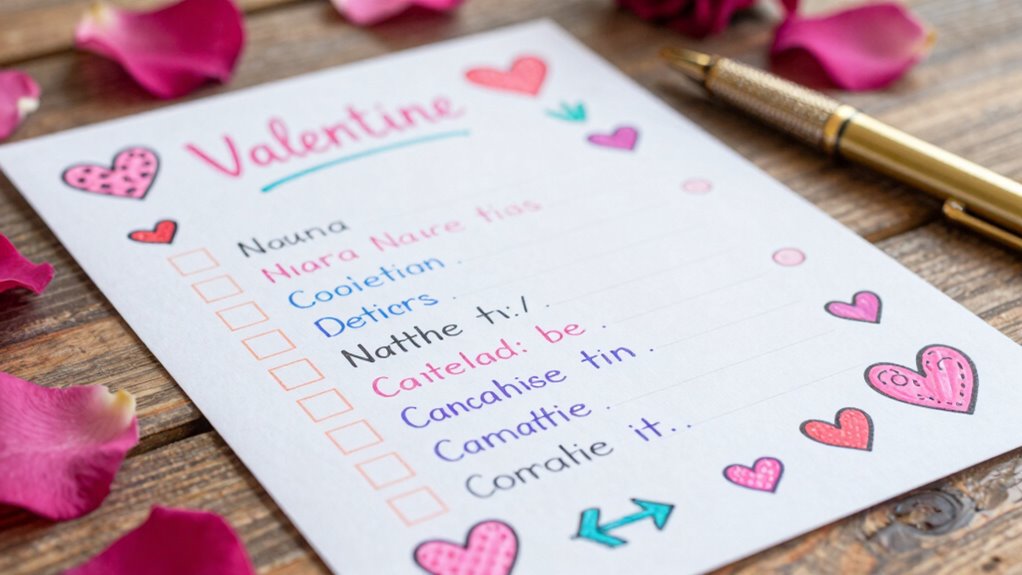 Valentine
Nouna
Niara Naire tias
Cooietian .
Deticrs .
Natthe tı:/.
Caitelad: be .
Cancahise tin .
Camattie .
Corratie it..